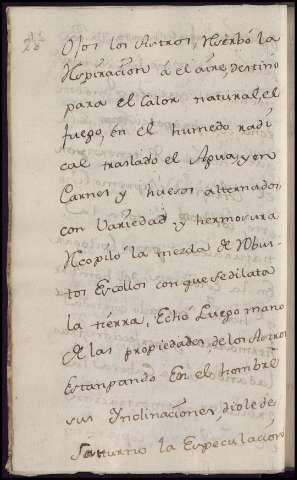 Ojos los Astros, Reserbó la
Respiracion á el aire, destino
para el Calor natural, el
fuego, en el humedo radi
cal traslado el Agua, y en
Carnes y huesos alternados
con Variedad y hermosura
Recopiló la mezcla de
tos Escollos con que se dilata
la tierra, Echó Luego mano
de las propiedades, de los Astros
Estanpando En el hombre
sus Ynclinaciones, diole de
Saturno la Especulación